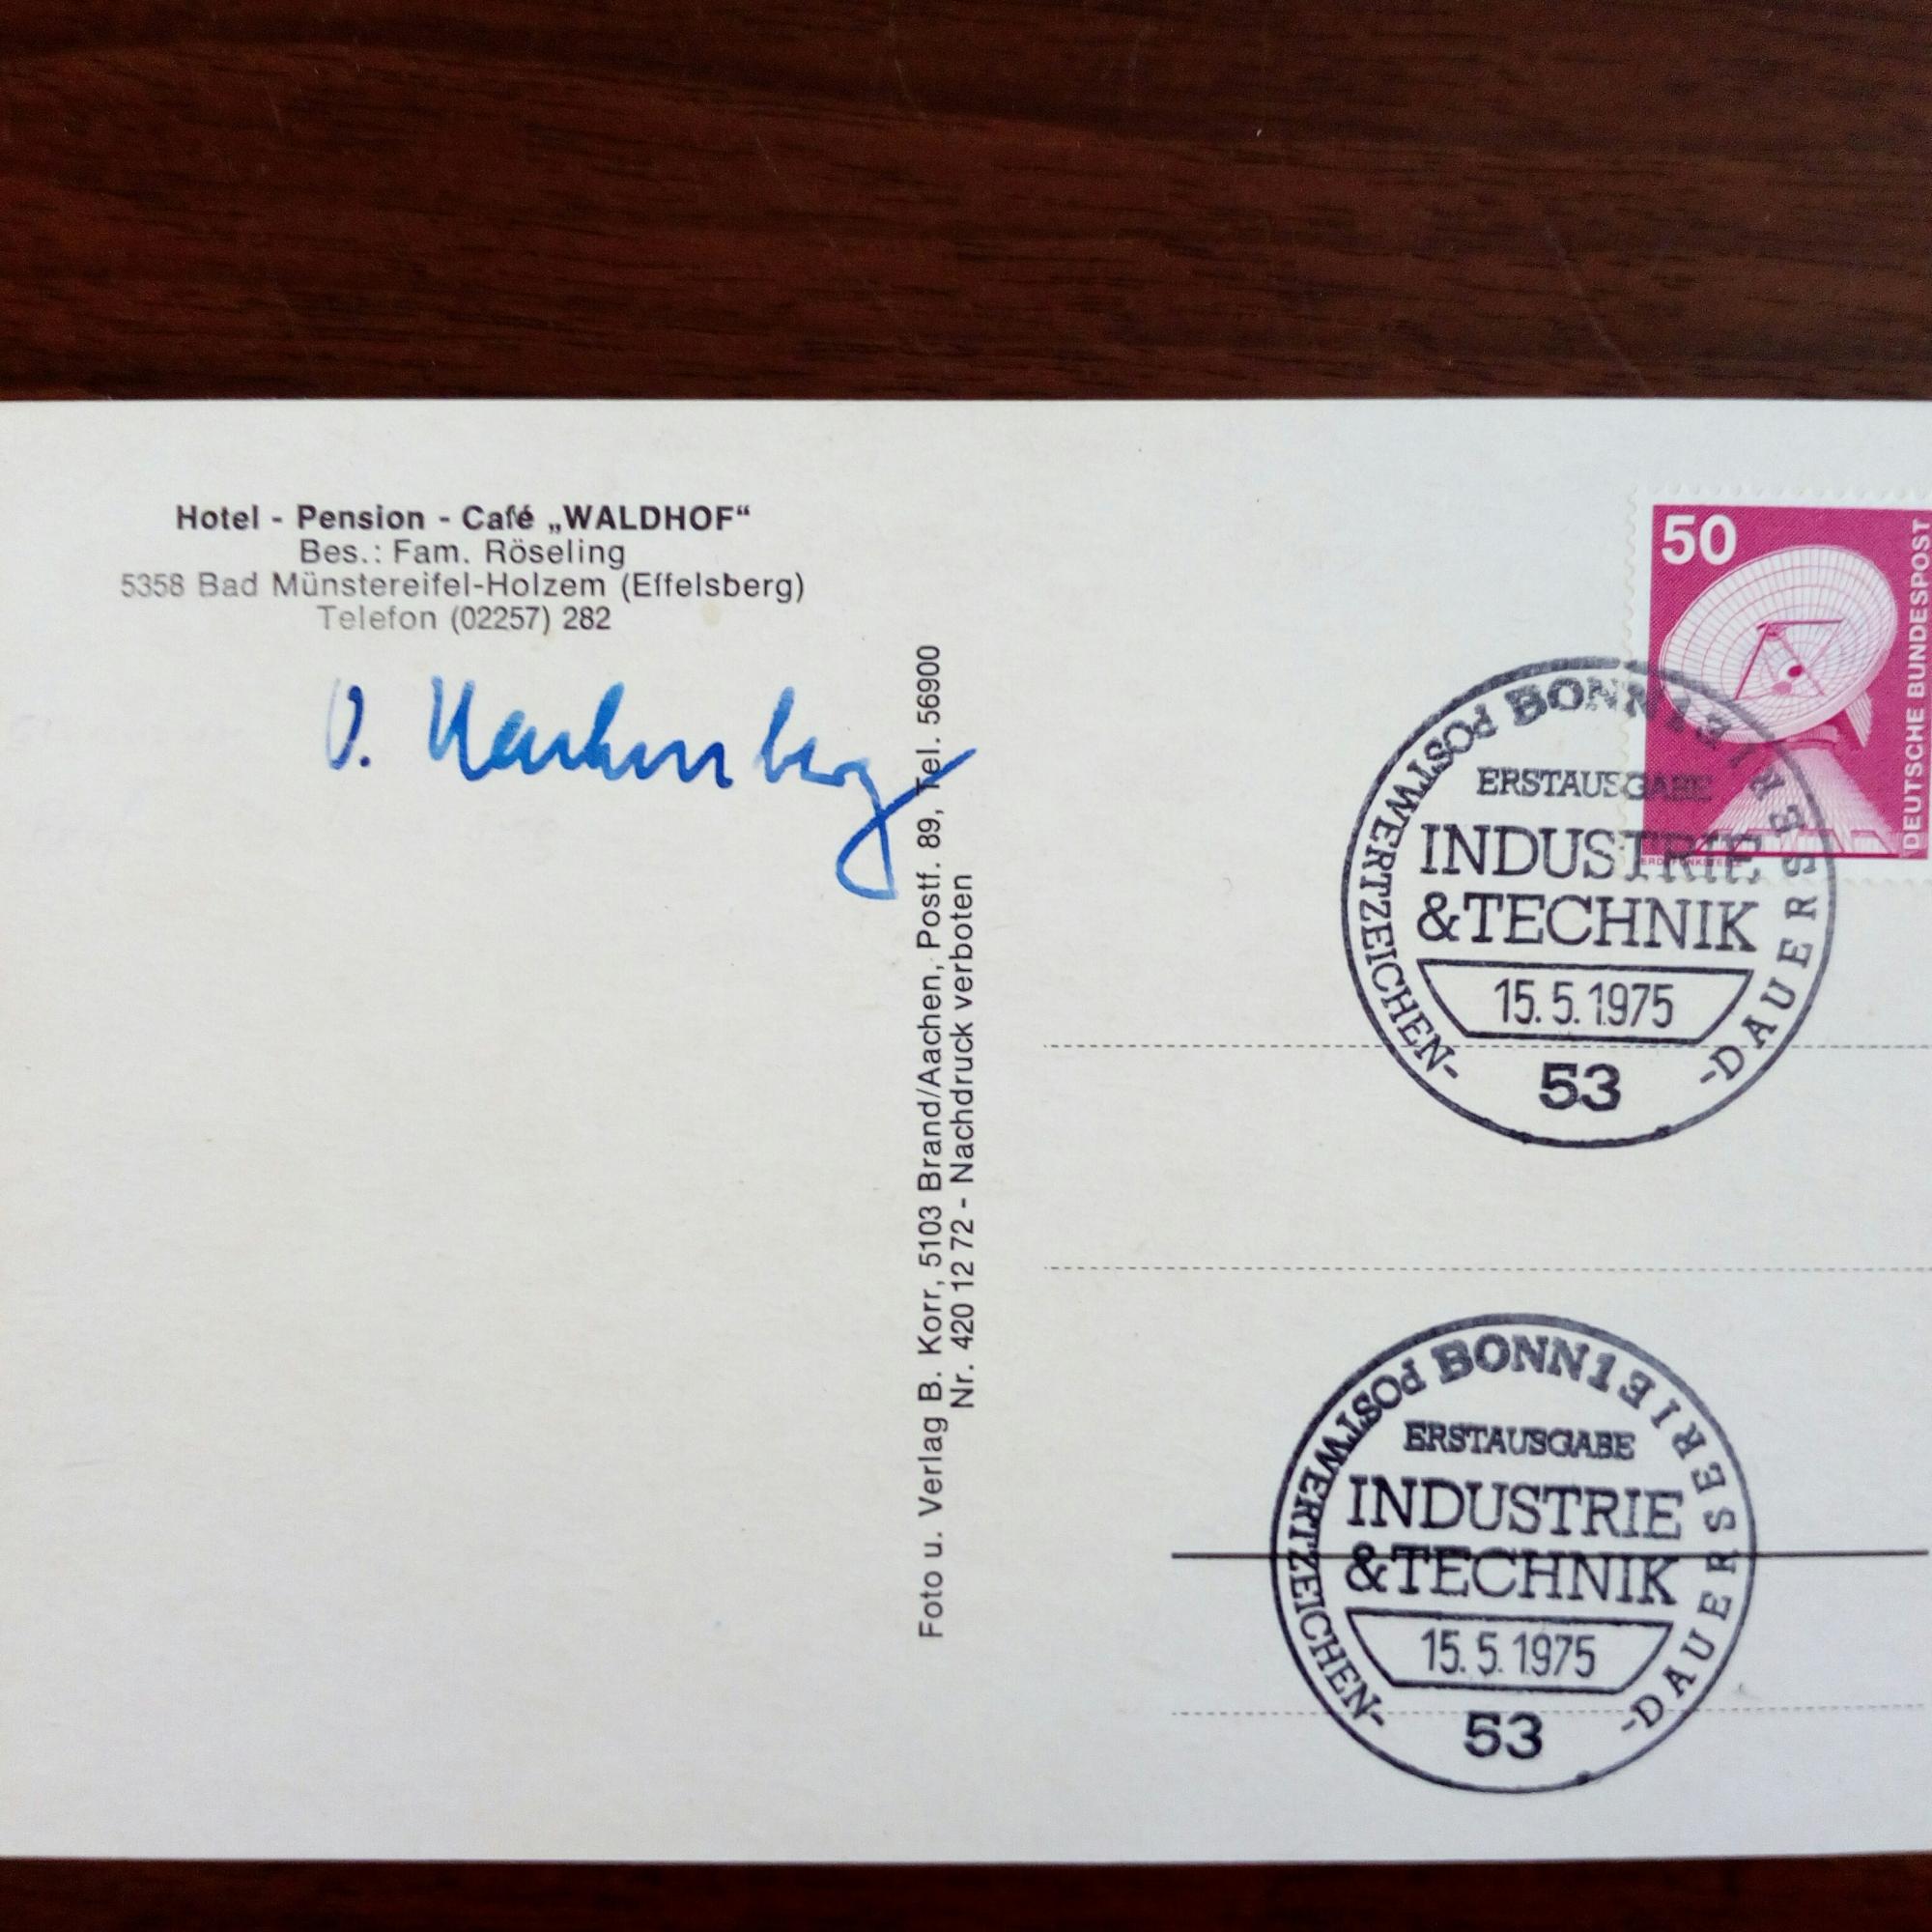 Hotel - Pension - Café „WALDHOF“
Bes.: Fam. Röseling
5358 Bad Münstereifel-Holzem (Effelsberg)
Telefon (02257) 282
O. Hachenberg
Foto u. Verlag B. Korr, 5103 Brand/Aachen, Postf. 89, Tel. 56900
Nr. 420 12 72 - Nachdruck verboten
50
DEUTSCHE BUNDESPOST
ERDFUNKSTELLE
BONN 1
-DAUERSERIE POSTWERTZEICHEN-
ERSTAUSGABE
INDUSTRIE
&TECHNIK
15.5.1975
53
BONN 1
-DAUERSERIE POSTWERTZEICHEN-
ERSTAUSGABE
INDUSTRIE
&TECHNIK
15.5.1975
53